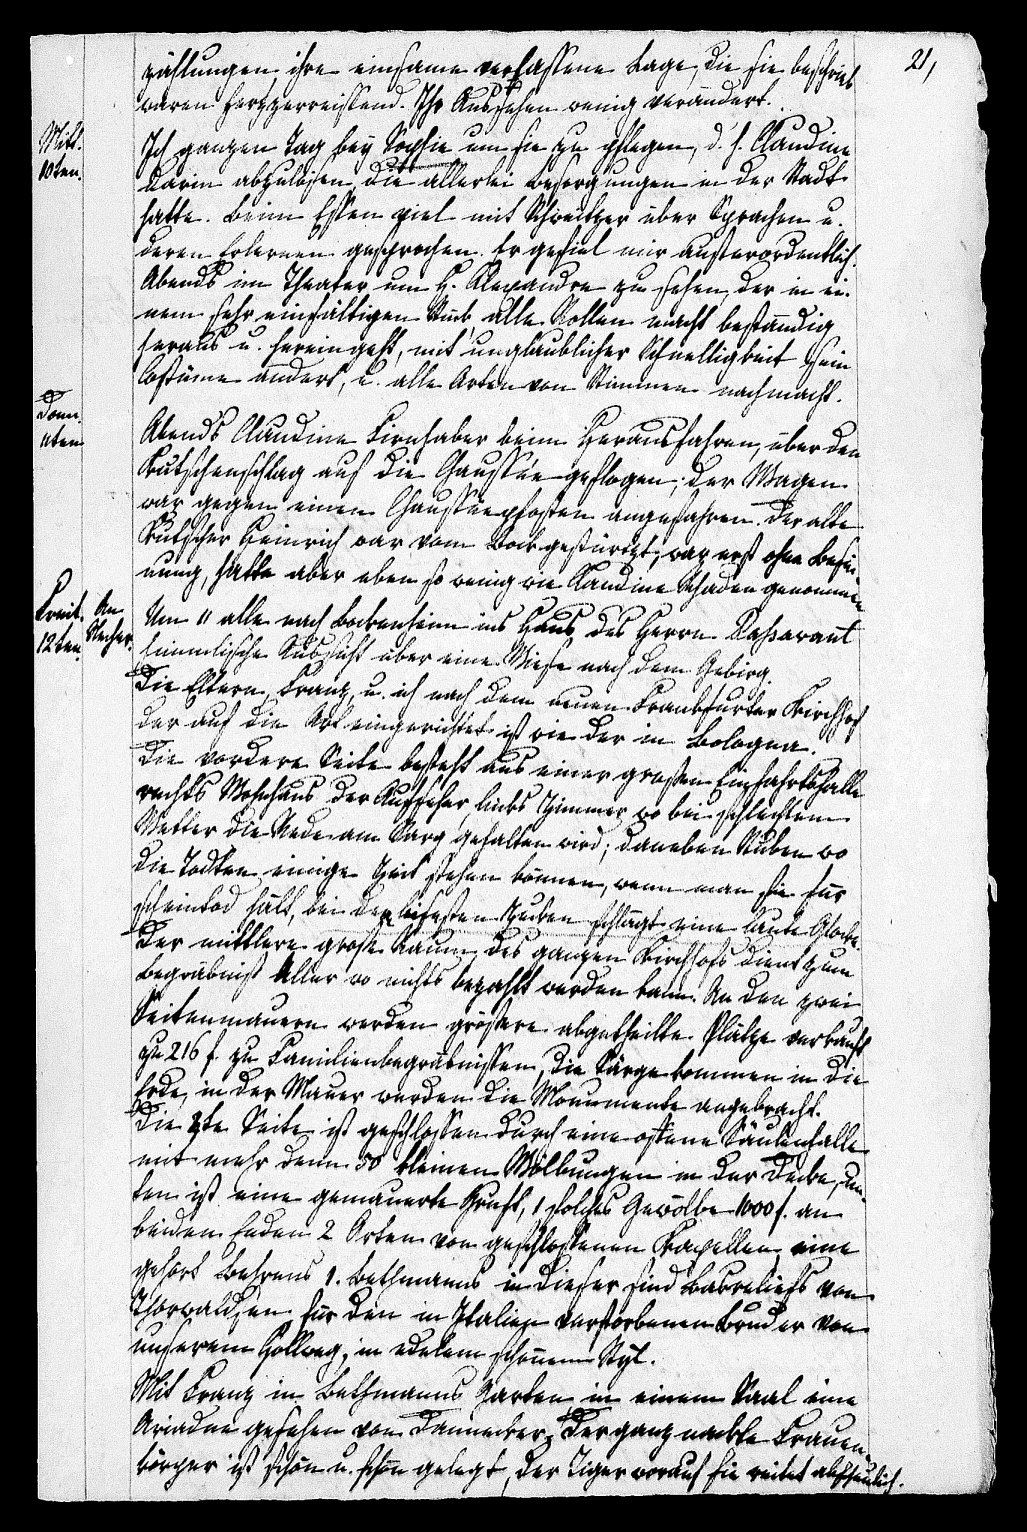 21,
zählungen ihre einsame verlassene Lage, die sie beschrieb
waren herzzerreissend. Ihr Aussehen wenig verändert.
Mitt.
10ten.
Ich ganzen Tag bey Sophie um sie zu pflegen, d. h. Claudine
darin abzulösen, die allerlei Besorgungen in der Stadt
hatte. Beim Essen viel mit Schweitzer über Sprachen u.
deren Erlernen gesprochen. Er gefiel mir ausserordentlich.
Abends im Theater um H. Alexandre zu sehen, der in ei-
nem sehr einfältigen Stück alle Rollen macht beständig
heraus u. hereingeht, mit unglaublicher Schnelligkeit sein
Costüme ändert, u. alle Arten von Stimmen nachmacht.
Donn.
11ten
Abends Claudine Firnhaber beim Herausfahren, über den
Kutschenschlag auf die Chaussée geflogen; der Wagen
war gegen einen Chausséepfosten angefahren. Der alte
Kutscher Heinrich war vom Bock gestürzt, war erst ohne Besin-
nung, hatte aber eben so wenig wie Claudine Schaden genommen
Freit.
12ten.
An
Um 11 alle nach Bockenheim ins Haus des Herrn Passavant
himmlische Aussicht über eine Wiese nach dem Gebirg.
Die Eltern, Franz, u. ich nach dem neuen Frankfurter Kirchhof
der auf die Art eingerichtet ist wie der in Bologna.
Die vordere Seite besteht aus einer grossen Einfahrtshalle
rechts Wohnhaus der Aufseher, links Zimmer wo bei schlechtem
Wetter die Rede am Sarg gehalten wird; daneben Stuben wo
die Todten einige Zeit stehen können, wenn man sie für
scheintod hält, bei den leisesten Zucken schlägt eine laute Glocke.
Der mittlere grosse Raum des ganzen Kirchhofs dient zum
Begräbnist Aller wo nichts bezahlt werden kann. An den zwei
Seitenmauern werden grössere abgetheilte Plätze verkauft
zu 216 f. zu Familienbegräbnissen, die Särge kommen in die
Erde, in der Mauer werden die Monumente angebracht.
Die 3te Seite ist geschlossen durch eine offene Säulenhalle
mit mehr denn 50 kleinen Wölbungen in der Decke, un-
ten ist eine gemauerte Gruft, 1 solches Gewölbe 1000 f. an
beiden Enden 2 Arten von geschlossenen Kapellen, eine
gehört Bethmanns in dieser sind Basreliefs von
Thorwaldsen für den in Italien verstorbenen Bruder von
unserem Hollweg, in edelem schönem Styl.
Mit Franz in Bethmanns Garten in einem Saal eine
Ariadne gesehen von Dannecker, der ganz nackte Frauen-
körper ist schön u. schön gelegt, der Tiger worauf sie reitet abscheulich.